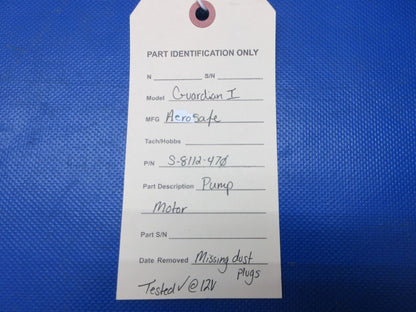 PART IDENTIFICATION ONLY
N S/N
Model Guardian I
MFG Aerosafe
Tach/Hobbs
P/N S-8112-470
Part Description Pump
Motor
Part S/N
Date Removed Missing dust
plugs
Tested ✓ @ 12V